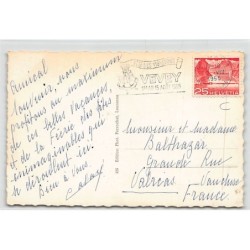 Amical
souvenir, nous
profitons au maximum
de ces belles vacances,
et de la Fête des plus
inimaginables qui
se déroulent ici.
Bien à vous.
VEVEY
25 HELVETIA
Monsieur et madame
Balthazar
Grande Rue
Valréas
Vaucluse
France